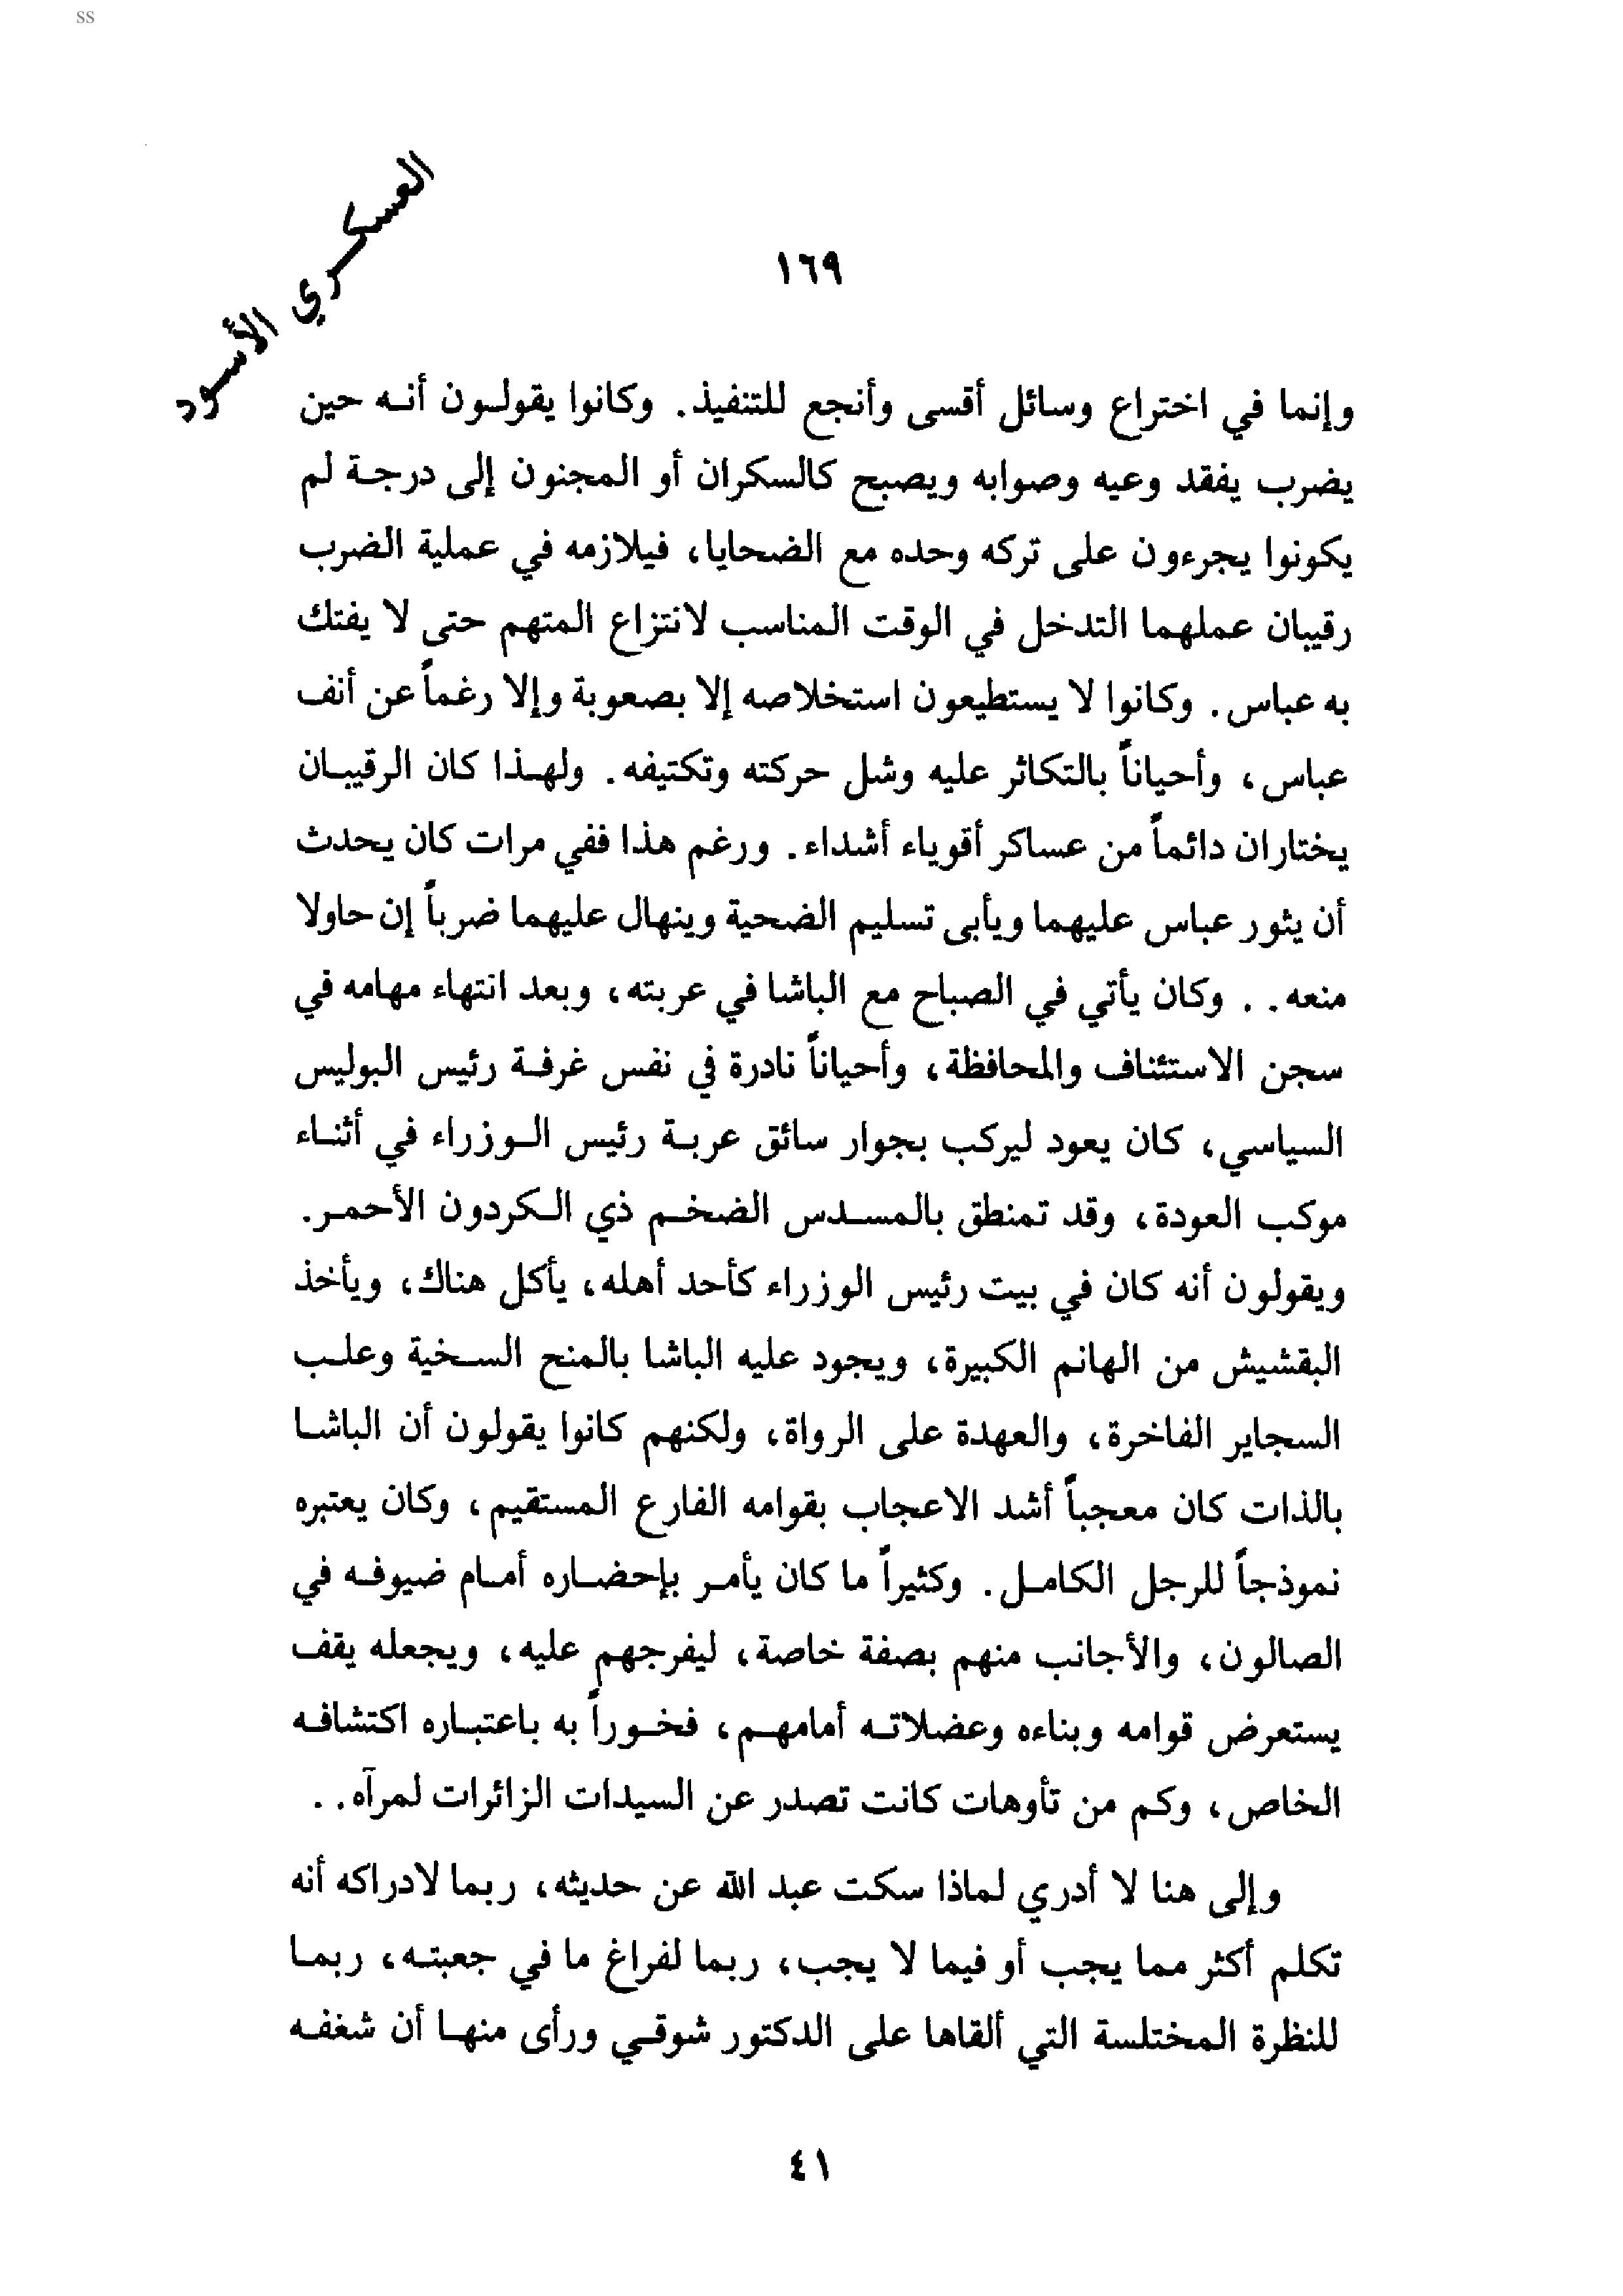 ss
العسكري الأسود
١٦٩
وإنما في اختراع وسائل أقسى وأنجع للتنفيذ. وكانوا يقولون أنه حين
يضرب يفقد وعيه وصوابه ويصبح كالسكران أو المجنون إلى درجة لم
يكونوا يجرءون على تركه وحده مع الضحايا، فيلازمه في عملية الضرب
رقيبان عملهما التدخل في الوقت المناسب لانتزاع المتهم حتى لا يفتك
به عباس. وكانوا لا يستطيعون استخلاصه إلا بصعوبة وإلا رغماً عن أنف
عباس، وأحياناً بالتكاثر عليه وشل حركته وتكتيفه. ولهذا كان الرقيبان
يختاران دائماً من عساكر أقوياء أشداء. ورغم هذا ففي مرات كان يحدث
أن يثور عباس عليهما ويأبى تسليم الضحية وينهال عليهما ضرباً إن حاولا
منعه. . وكان يأتي في الصباح مع الباشا في عربته، وبعد انتهاء مهامه في
سجن الاستئناف والمحافظة، وأحياناً نادرة في نفس غرفة رئيس البوليس
السياسي، كان يعود ليركب بجوار سائق عربة رئيس الوزراء في أثناء
موكب العودة، وقد تمنطق بالمسدس الضخم ذي الكردون الأحمر.
ويقولون أنه كان في بيت رئيس الوزراء كأحد أهله، يأكل هناك، ويأخذ
البقشيش من الهانم الكبيرة، ويجود عليه الباشا بالمنح السخية وعلب
السجاير الفاخرة، والعهدة على الرواة، ولكنهم كانوا يقولون أن الباشا
بالذات كان معجباً أشد الاعجاب بقوامه الفارع المستقيم، وكان يعتبره
نموذجاً للرجل الكامل. وكثيراً ما كان يأمر بإحضاره أمام ضيوفه في
الصالون، والأجانب منهم بصفة خاصة، ليفرجهم عليه، ويجعله يقف
يستعرض قوامه وبناءه وعضلاته أمامهم، فخوراً به باعتباره اكتشافه
الخاص، وكم من تأوهات كانت تصدر عن السيدات الزائرات لمرآه. .
وإلى هنا لا أدري لماذا سكت عبد الله عن حديثه، ربما لادراكه أنه
تكلم أكثر مما يجب أو فيما لا يجب، ربما لفراغ ما في جعبته، ربما
للنظرة المختلسة التي ألقاها على الدكتور شوقي ورأى منها أن شغفه
٤١